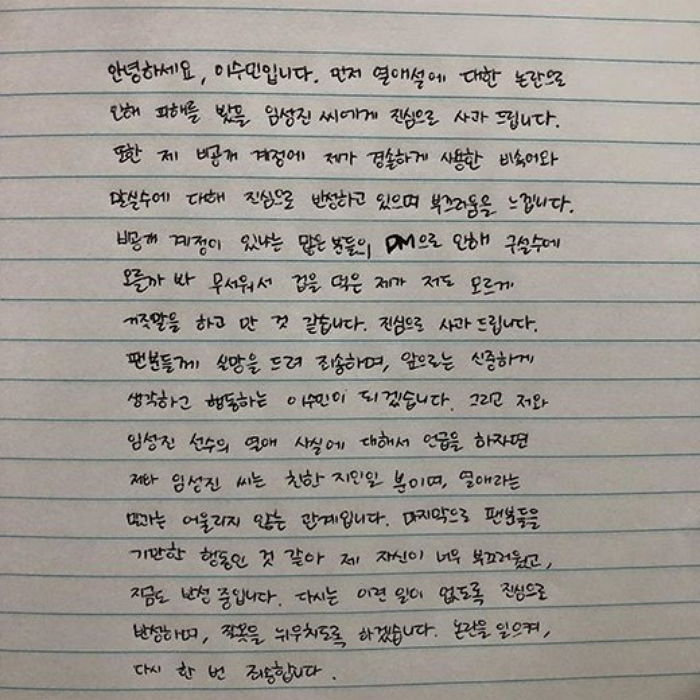 안녕하세요, 이수민입니다. 먼저 열애설에 대한 논란으로
인해 피해를 봤을 임성진 씨에게 진심으로 사과 드립니다.
또한 제 비공개 계정에 제가 경솔하게 사용한 비속어와
말실수에 대해 진심으로 반성하고 있으며 부끄러움을 느낍니다.
비공개 계정이 있냐는 많은 분들의 DM으로 인해 구설수에
오를까 봐 무서워서 겁을 먹은 제가 저도 모르게
거짓말을 하고 만 것 같습니다. 진심으로 사과드립니다.
팬분들께 실망을 드려 죄송하며, 앞으로는 신중하게
생각하고 행동하는 이수민이 되겠습니다. 그리고 저와
임성진 선수의 열애 사실에 대해서 언급을 하자면
저와 임성진 씨는 친한 지인일 뿐이며, 열애라는
말과는 어울리지 않는 관계입니다. 마지막으로 팬분들을
기만한 행동인 것 같아 제 자신이 너무 부끄러웠고,
지금도 반성 중입니다. 다시는 이런 일이 없도록 진심으로
반성하며, 잘못을 뉘우치도록 하겠습니다. 논란을 일으켜,
다시 한 번 죄송합니다.